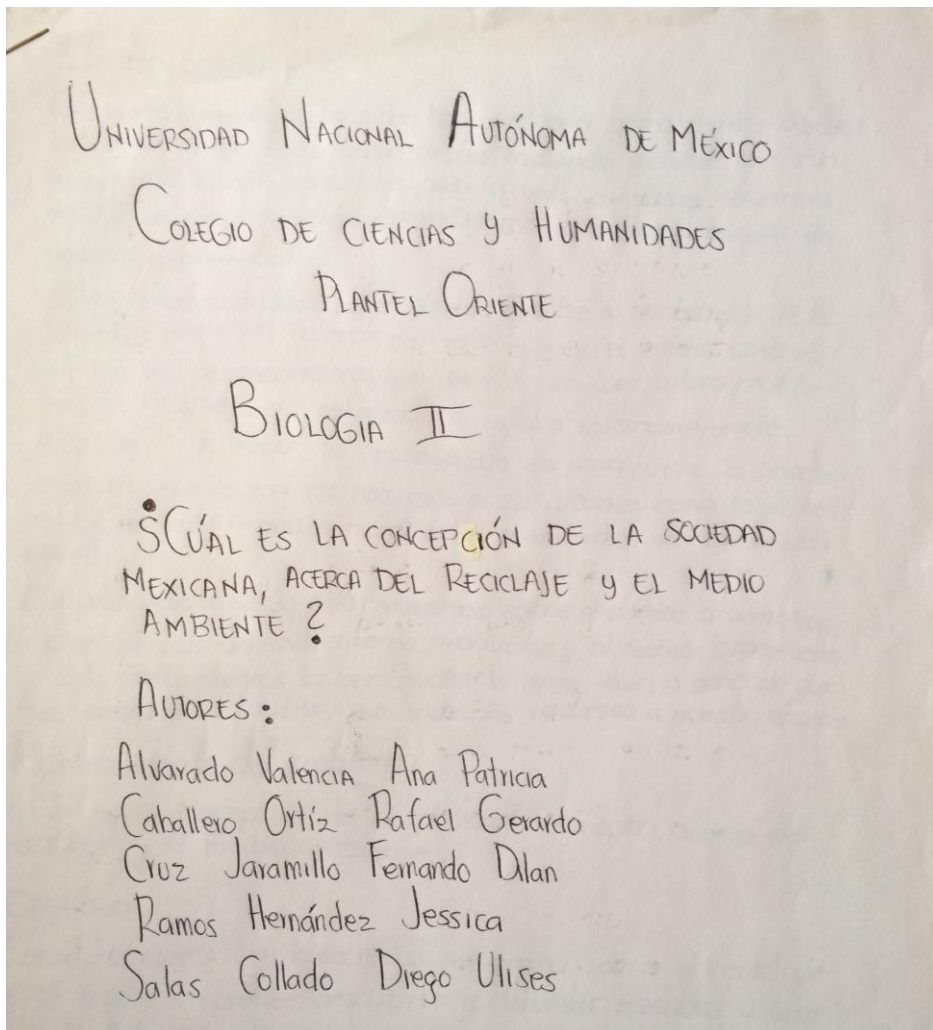 UNIVERSIDAD NACIONAL AUTÓNOMA DE MÉXICO
COLEGIO DE CIENCIAS Y HUMANIDADES
PLANTEL ORIENTE
BIOLOGIA II
¿CÚAL ES LA CONCEPCIÓN DE LA SOCIEDAD
MEXICANA, ACERCA DEL RECICLAJE Y EL MEDIO
AMBIENTE?
AUTORES:
Alvarado Valencia Ana Patricia
Caballero Ortíz Rafael Gerardo
Cruz Jaramillo Fernando Dilan
Ramos Hernández Jessica
Salas Collado Diego Ulises